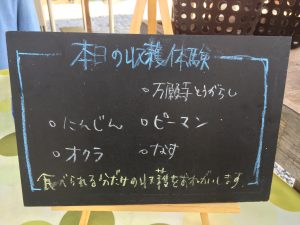 本日の収穫体験
○万願寺とうがらし
○にんじん ○ピーマン
○オクラ ○なす
食べられる分だけの収穫をおねがいします。